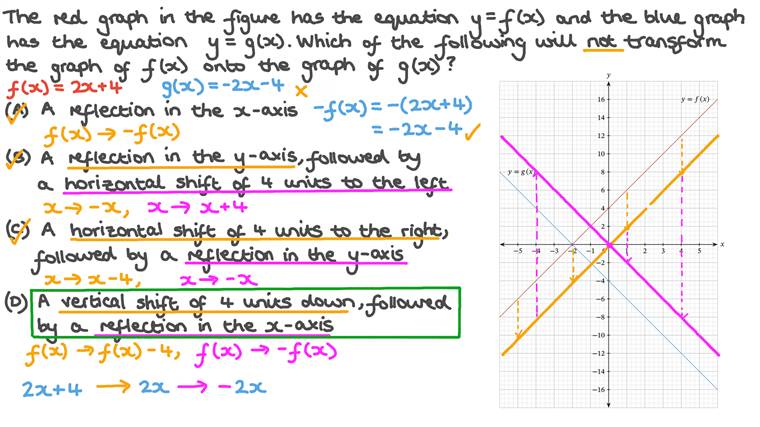 The red graph in the figure has the equation y=f(x) and the blue graph
has the equation y=g(x). Which of the following will not transform
the graph of f(x) onto the graph of g(x)?
f(x) = 2x+4 g(x) = -2x-4 x
(A) A reflection in the x-axis -f(x) = -(2x+4)
f(x) → -f(x) = -2x-4 ✓
(B) A reflection in the y-axis, followed by
a horizontal shift of 4 units to the left
x → -x, x → x+4
(C) A horizontal shift of 4 units to the right,
followed by a reflection in the y-axis
x → x-4, x → -x
(D) A vertical shift of 4 units down, followed
by a reflection in the x-axis
f(x) → f(x)-4, f(x) → -f(x)
2x+4 → 2x → -2x
y
y = f(x)
y = g(x)
x
16
14
12
10
8
6
4
2
-5 -4 -3 -2 -1 0 1 2 3 4 5
-2
-4
-6
-8
-10
-12
-14
-16